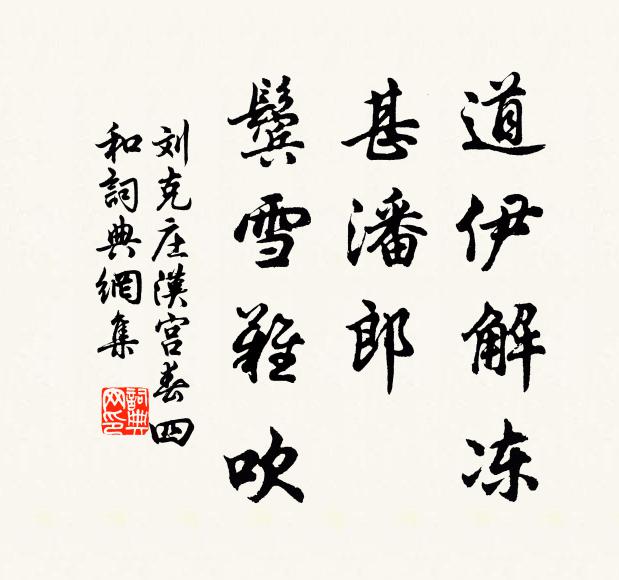 道伊解冻
甚潘郎
鬓雪难吹
刘克庄漢宫春四
和詞典網集
詞典网印